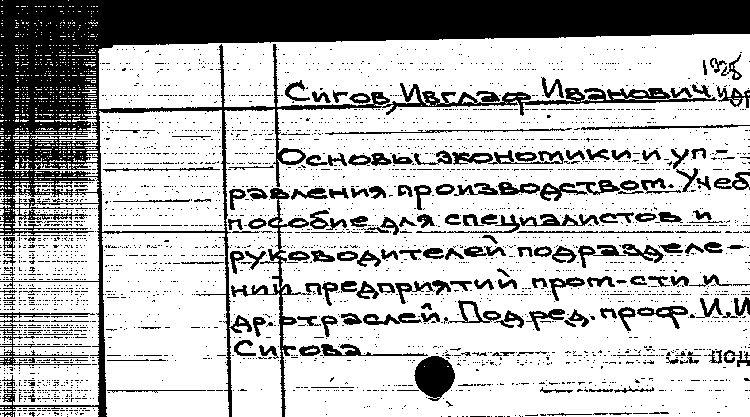 1928
Сигов, Ивглаф Иванович и др
Основы экономики и уп-
равления производством. Учеб
пособие для специалистов и
руководителей подразделе-
ний предприятий пром-сти и
др. отраслей. Под ред. проф. И.И
Сигова.
см. под